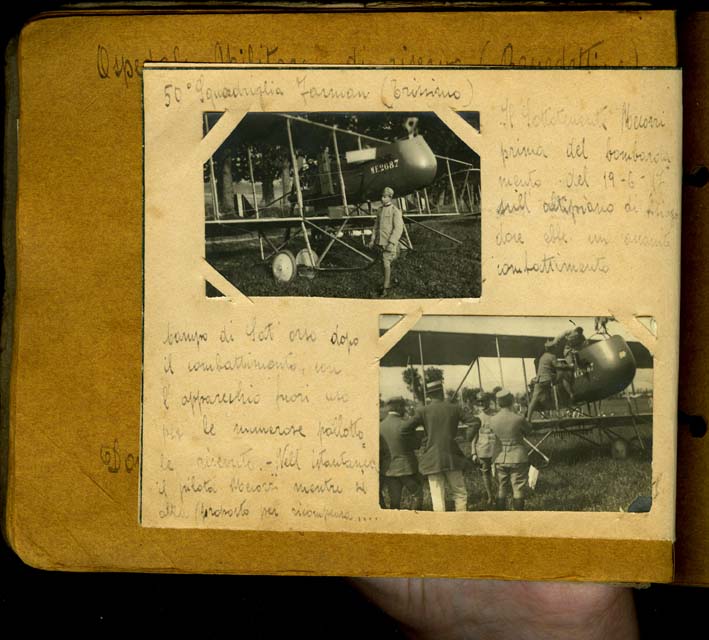 Ospedale Militare di riserva (Benedettine)
50° Squadriglia Farman (Trissino)
ME2687
Il Sottotenente
prima del bombarda
mento del 19-6-17
sull'altipiano di
dove ebbe un
combattimento
Campo di Sott' orso dopo
il combattimento, con
l'apparecchio fuori uso
per le numerose pallotto
le ricevute. - Nell'istantanea
il pilota mentre
proposto per ricompensa....
Do